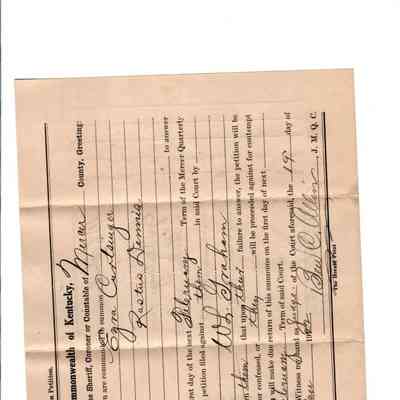 e Petition.
ommonwealth of Kentucky,
he Sheriff, Coroner or Constable of Mercer County, Greeting:
are commanded to summon Ezra
Rastus Dennis
to answer
rst day of the next February Term of the Mercer Quarterly
petition filed against them in said Court by
W L Graham
n them that upon their failure to answer, the petition will be
or confessed, or they will be proceeded against for contempt
will make due return of this summons on the first day of next
bruary Term of said Court.
Witness my hand as Judge of the Court aforesaid, the 19 day of
190 Geo C Allin J. M. Q. C.
—The Herald Print